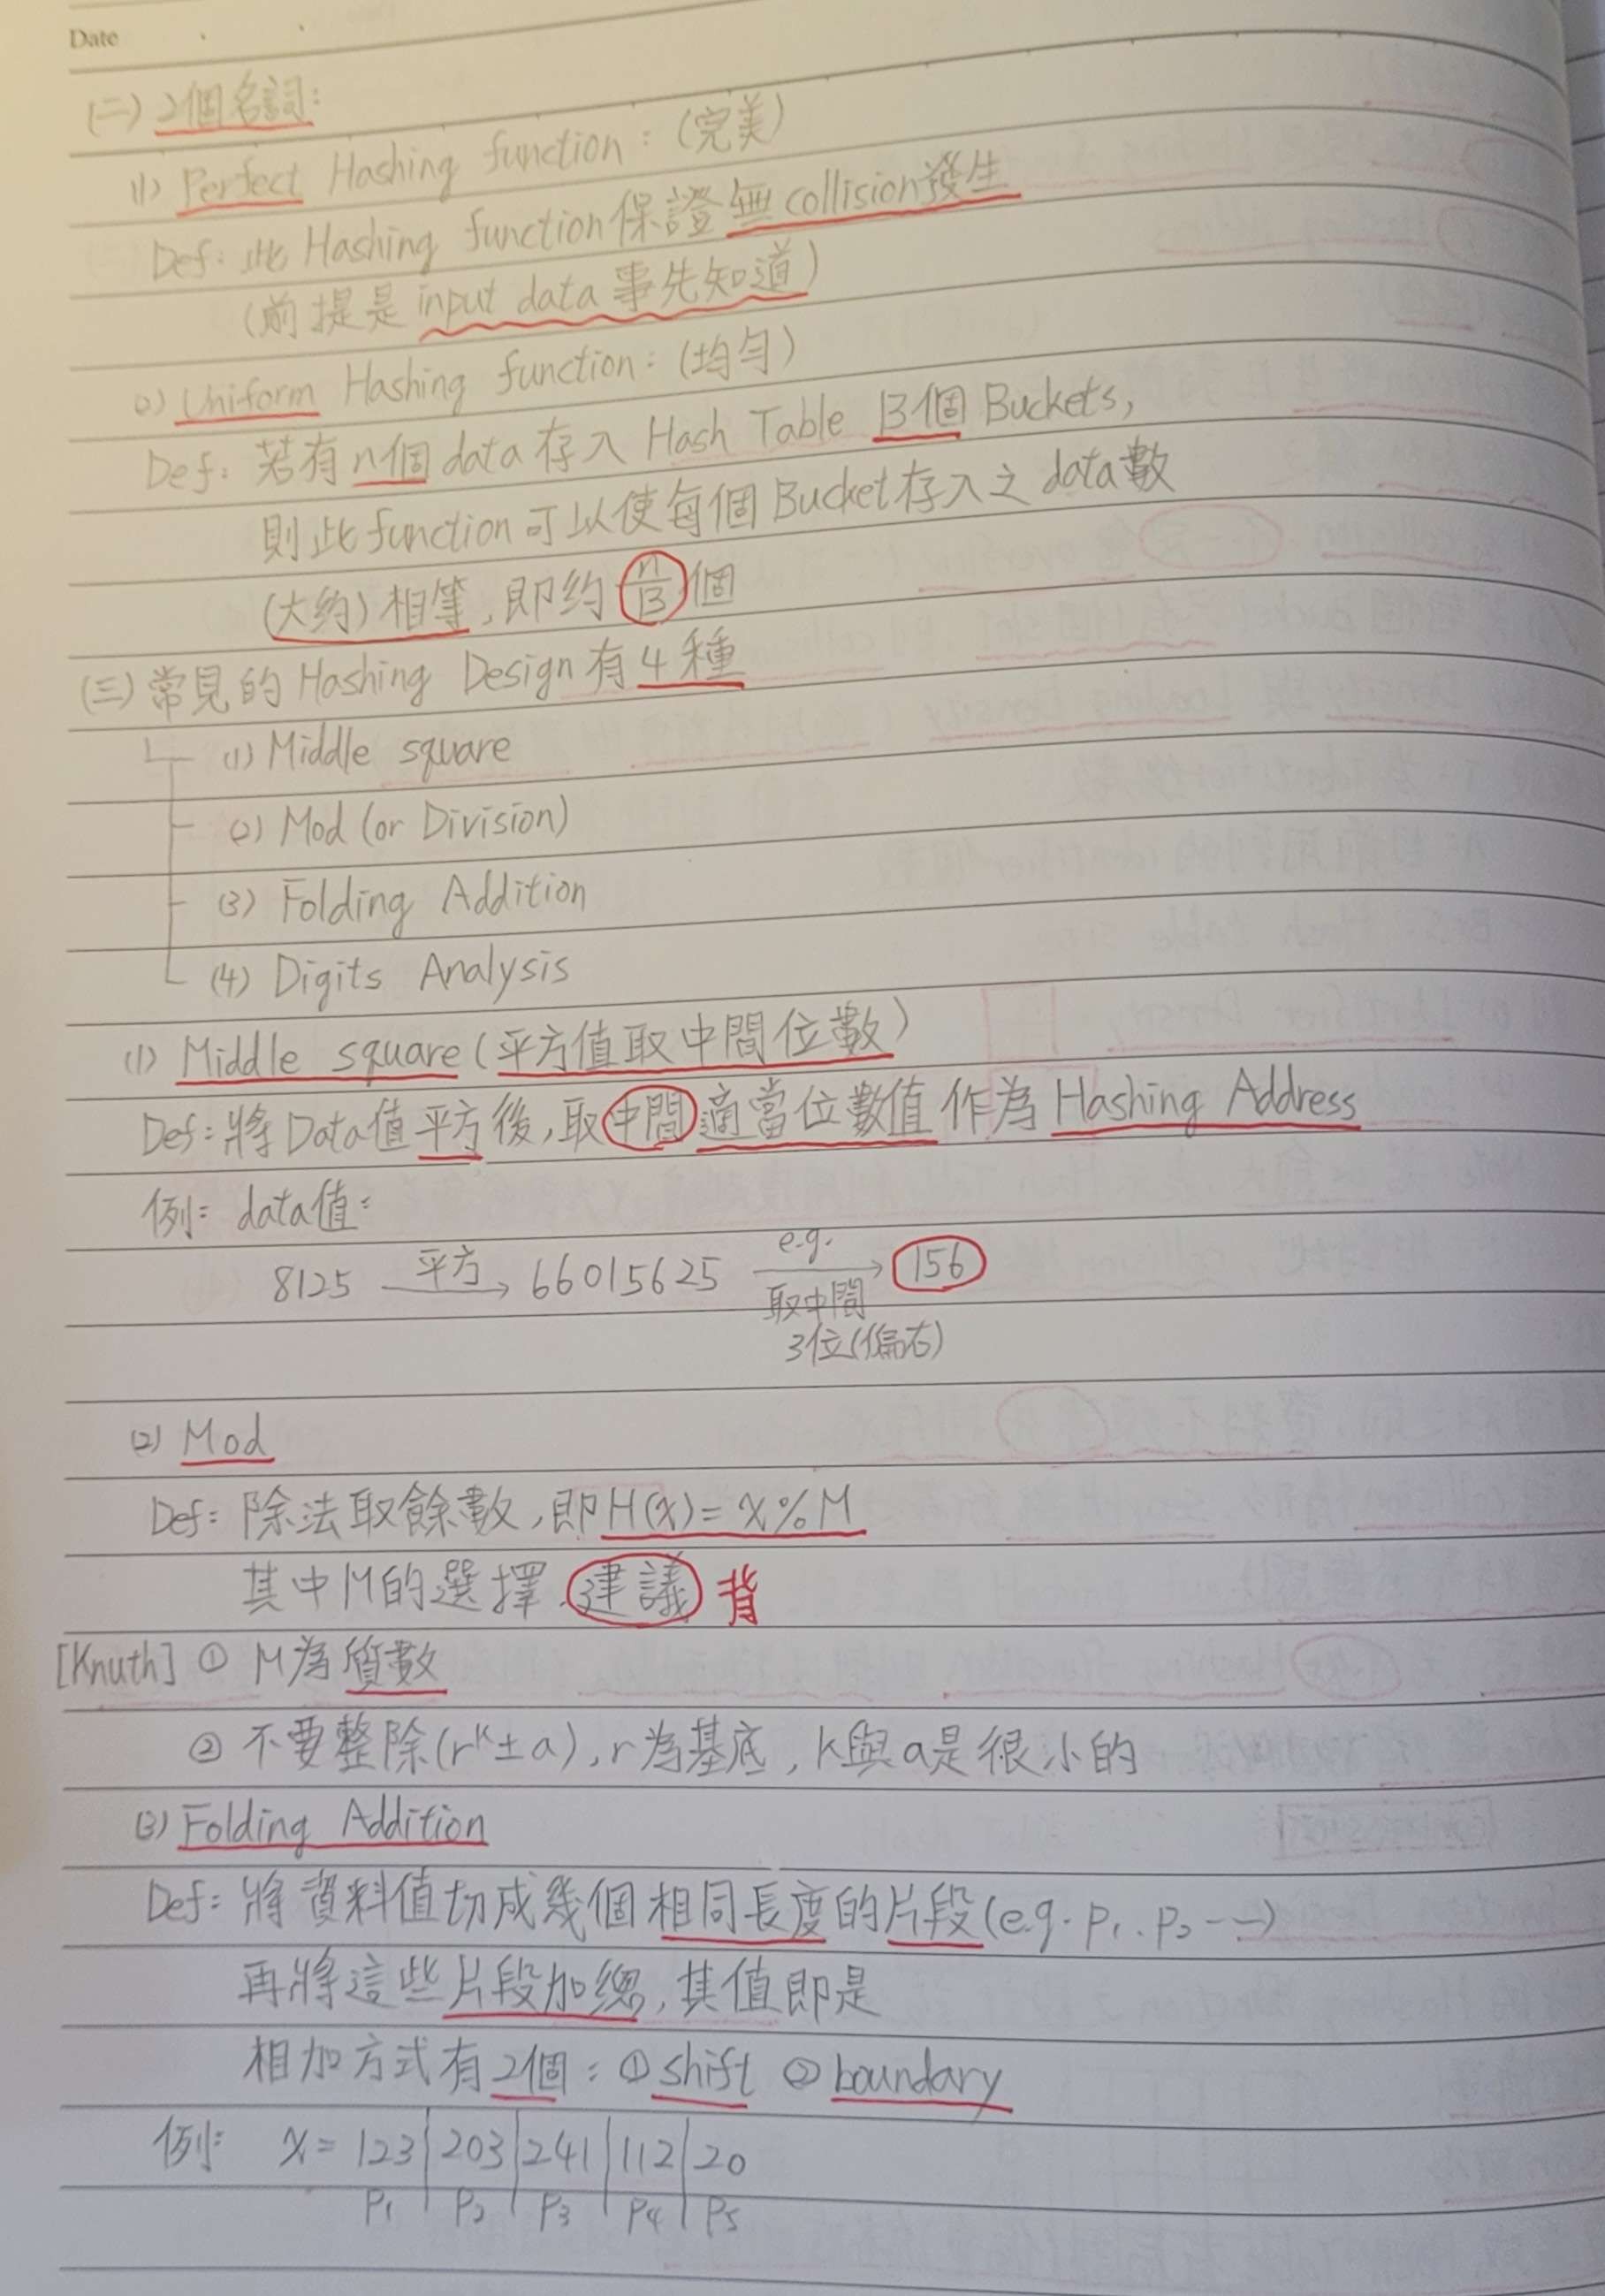 Date
(二) 2個名詞:
(1) Perfect Hashing function: (完美)
Def: 此 Hashing function保證無collision發生
(前提是input data事先知道)
(2) Uniform Hashing function: (均勻)
Def: 若有n個data存入 Hash Table B個 Buckets,
則此function可以使每個Bucket存入之data數
(大約)相等,即約 n/B 個
(三)常見的 Hashing Design有4種
(1) Middle square
(2) Mod (or Division)
(3) Folding Addition
(4) Digits Analysis
(1) Middle square(平方值取中間位數)
Def: 將Data值平方後,取中間適當位數值作為Hashing Address
例: data值:
8125 平方→ 66015625 e.g. 取中間→ 156
3位(偏右)
(2) Mod
Def: 除法取餘數,即H(x)=x%M
其中M的選擇,建議 背
[Knuth] ① M為質數
② 不要整除(r^k±a),r為基底,k與a是很小的
(3) Folding Addition
Def: 將資料值切成幾個相同長度的片段(e.g. P1、P2 ---)
再將這些片段加總,其值即是
相加方式有2個: ①shift ②boundary
例: x=123|203|241|112|20
P1 | P2 | P3 | P4 | P5